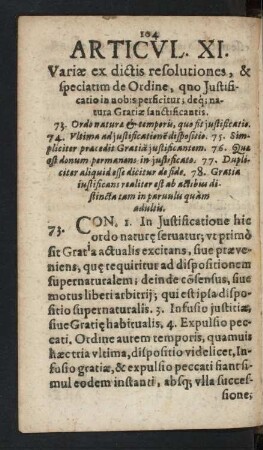 104
ARTICVL. XI.
Variæ ex dictis resolutiones, &
speciatim de Ordine, quo Justifi-
catio in nobis perficitur; deq; na-
tura Gratiæ sanctificantis.
73. Ordo natura & temporis, quo fit justificatio.
74. Vltima ad justificationē dispositio. 75. Sim-
pliciter præcedit Gratiā justificantem. 76. Quæ
est donum permanens in justificato. 77. Dupli-
citer aliquid esse dicitur de fide. 78. Gratia
justificans realiter est ab actibus di-
stincta tam in parvulis quàm
adultis.
73. CON. 1. In Justificatione hic
ordo naturę servatur; vt primò
sit Gratia actualis excitans, siue præve-
niens, quę requiritur ad dispositionem
supernaturalem; deinde cōsensus, siue
motus liberi arbitrij; qui est ipsa dispo-
sitio supernaturalis. 3. Infusio justitiæ,
siue Gratię habitualis, 4. Expulsio pec-
cati, Ordine autem temporis, quamuis
hæc tria vltima, dispositio videlicet, In-
fusio gratiæ, & expulsio peccati fiant si-
mul eodem instanti, absq; vlla succes-
sione;